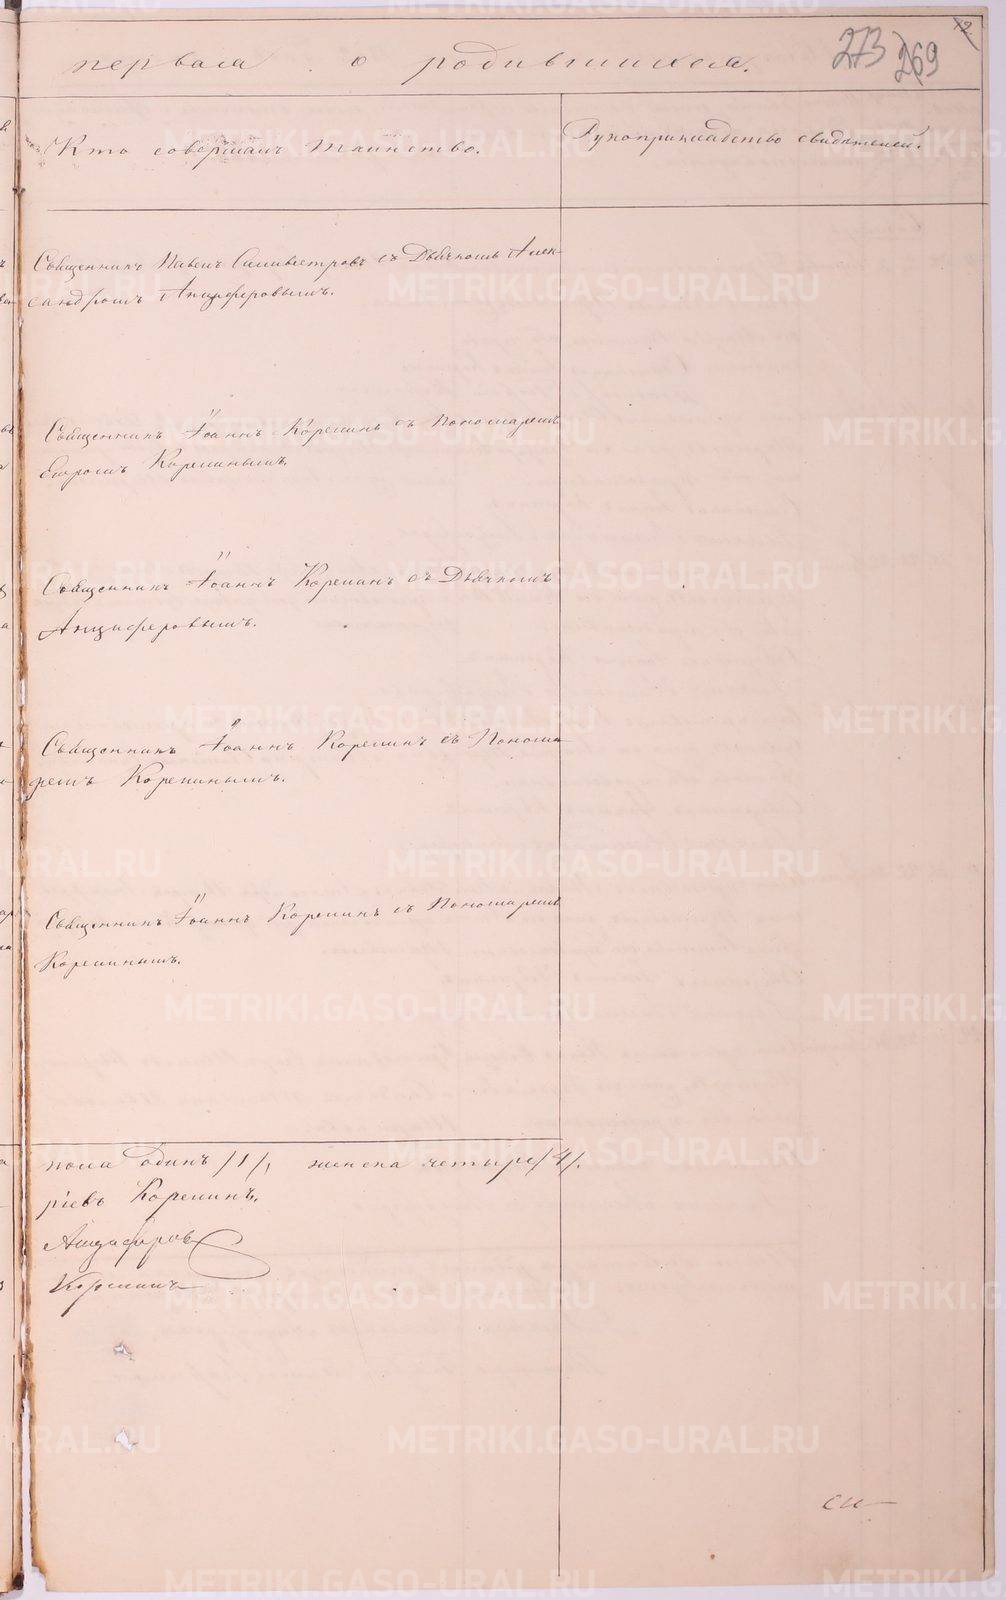 12
273 269
первая о родившихся.
Кто совершалъ таинство.
Рукоприкладство свидѣтелей.
Священникъ Павелъ Силивестровъ съ Дьячкомъ Алек
сандромъ Анциферовымъ.
Священникъ Іоаннъ Корепинъ съ Пономаремъ
Егоромъ Корепинымъ.
Священникъ Іоаннъ Корепинъ съ Дьячкомъ
Анциферовымъ.
Священникъ Іоаннъ Корепинъ съ Понома
ремъ Корепинымъ.
Священникъ Іоаннъ Корепинъ съ Пономаремъ
Корепинымъ.
пола одинъ /1/, женска четыре /4/.
ріевъ Корепинъ.
Анциферовъ
Корепинъ
METRIKI.GASO-URAL.RU